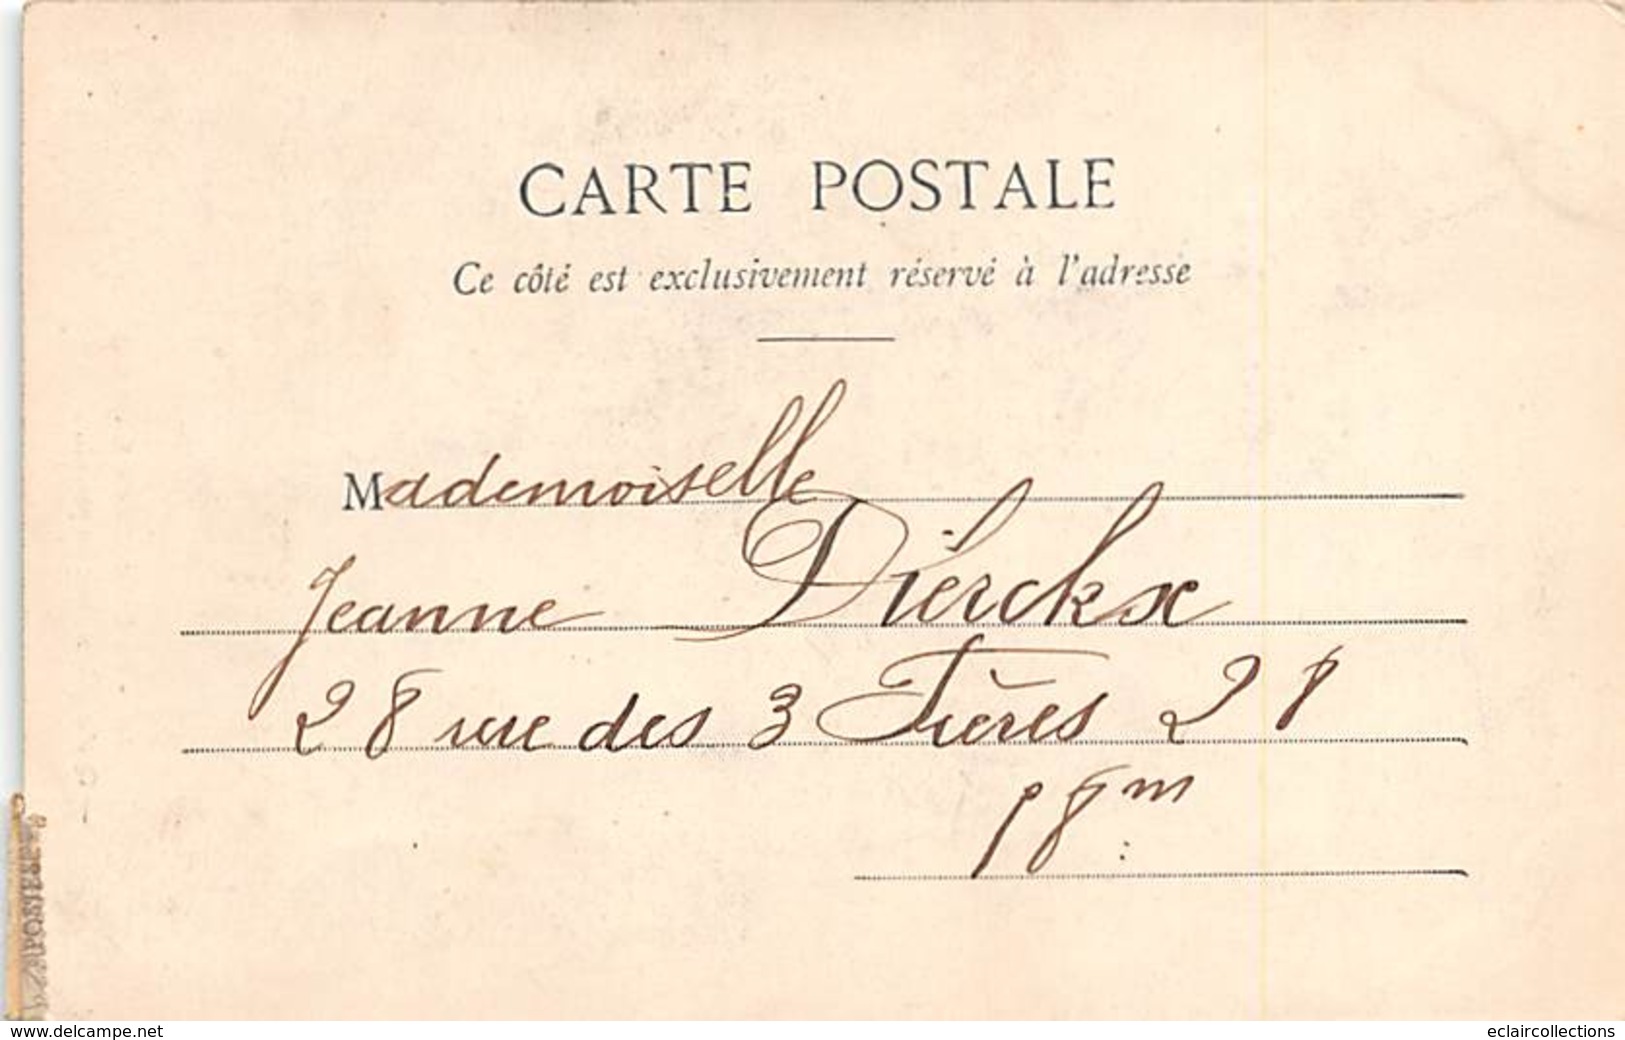 CARTE POSTALE
Ce côté est exclusivement réservé à l'adresse
Mademoiselle
Jeanne Dierckx
28 rue des 3 Frères 28
18m
POSTES
www.delcampe.net
eclaircollections